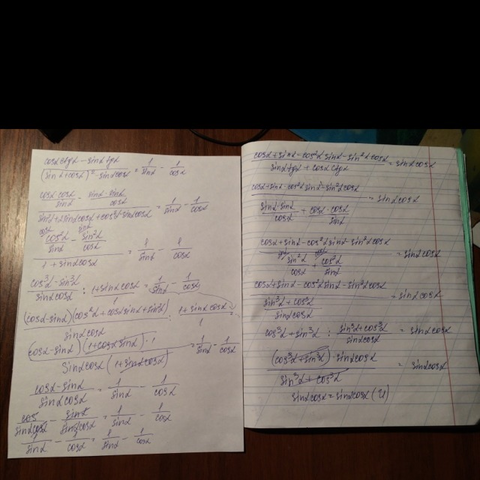 (cosα ctgα − sinα tgα)/((sinα + cosα)² − sinα cosα) = 1/sinα − 1/cosα
((cosα·cosα)/sinα − (sinα·sinα)/cosα)/(sin²α + 2sinα cosα + cos²α − sinα cosα) = 1/sinα − 1/cosα
(cos²α/sinα − sin²α/cosα)/(1 + sinα cosα) = 1/sinα − 1/cosα
(cos³α − sin³α)/(sinα cosα) : (1 + sinα cosα)/1 = 1/sinα − 1/cosα
(cosα − sinα)(cos²α + cosα sinα + sin²α)/(sinα cosα) : (1 + sinα cosα)/1
(cosα − sinα)(1 + cosα sinα)·1/(sinα cosα (1 + sinα cosα)) = 1/sinα − 1/cosα
(cosα − sinα)/(sinα cosα) = 1/sinα − 1/cosα
cosα/(sinα cosα) − sinα/(sinα cosα) = 1/sinα − 1/cosα
1/sinα − 1/cosα = 1/sinα − 1/cosα
(cosα + sinα − cos²α sinα − sin²α cosα)/(sinα tgα + cosα ctgα) = sinα cosα
(cosα + sinα − cos²α sinα − sin²α cosα)/((sinα·sinα)/cosα + (cosα·cosα)/sinα) = sinα cosα
(cosα + sinα − cos²α sinα − sin²α cosα)/(sin²α/cosα + cos²α/sinα) = sinα cosα
(cosα + sinα − cos²α sinα − sin²α cosα)/(sin³α + cos³α) = sinα cosα
cos³α + sin³α : (sin³α + cos³α)/(sinα cosα) = sinα cosα
(cos³α + sin³α) sinα cosα/(sin³α + cos³α) = sinα cosα
sinα cosα = sinα cosα (И)